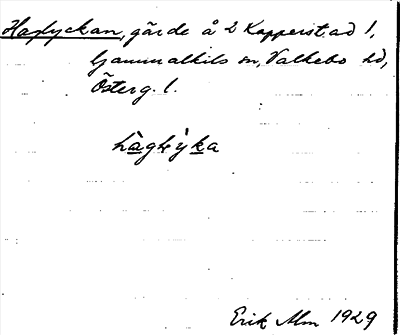 Haglyckan, gärde å 2 Kapperstad 1,
Gammalkils sn, Valkebo hd,
Österg. l.
Erik Alm 1929